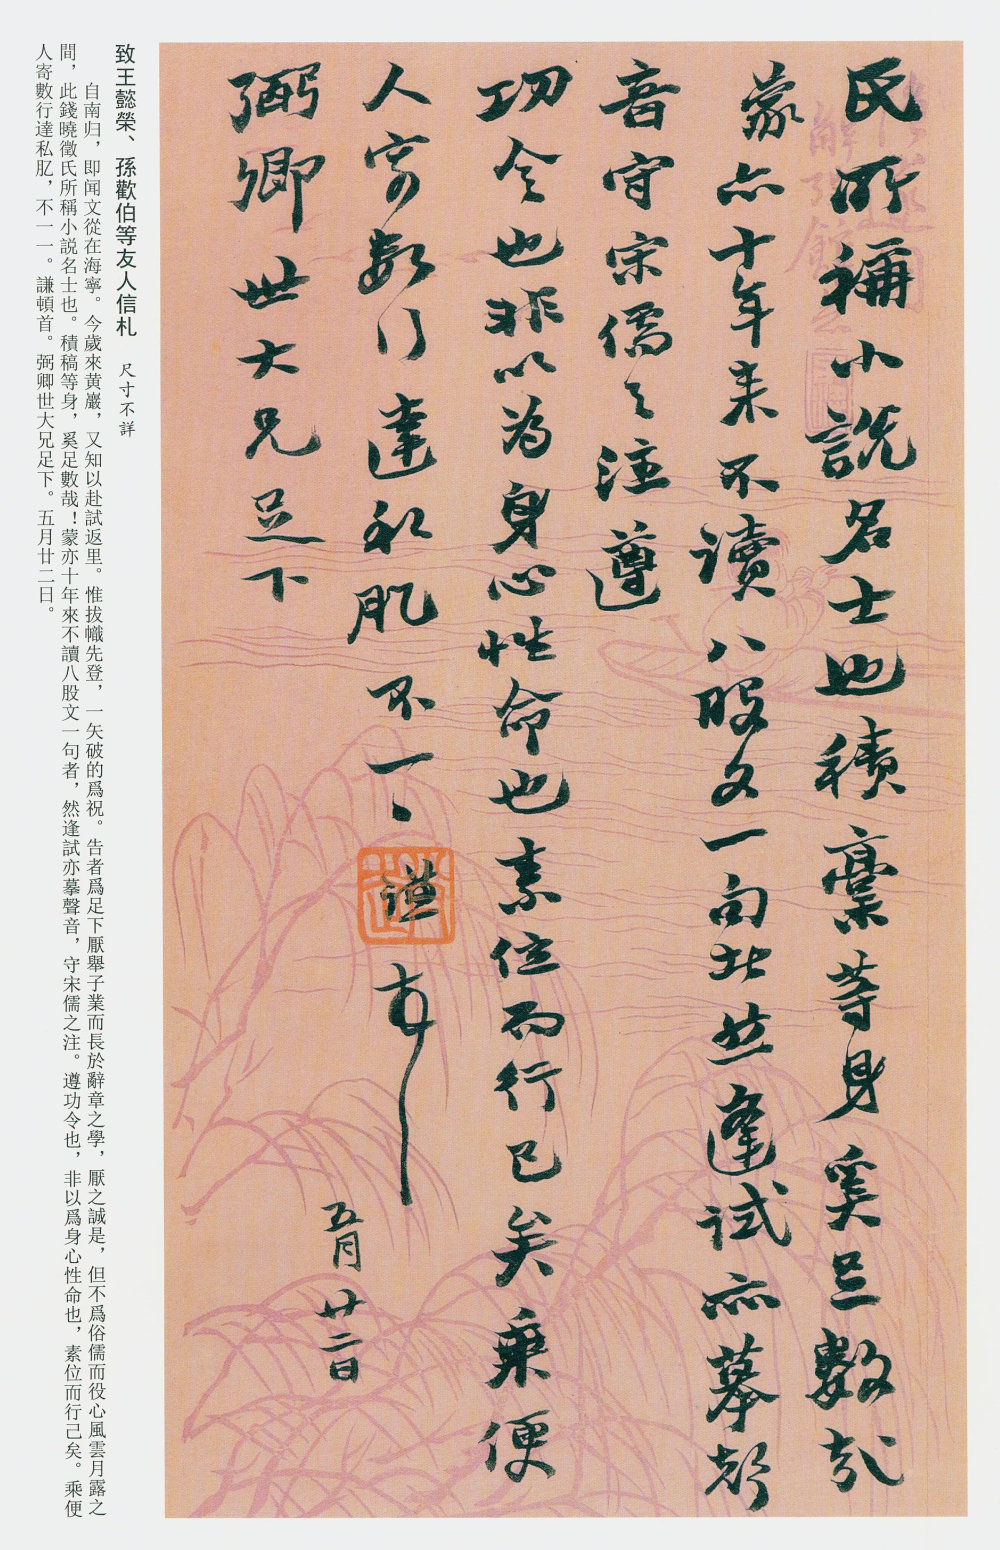 氏所稱小說名士也積稾等身奚足數哉
蒙亦十年來不讀八股文一句者然逢試亦摹聲
音守宋儒之注遵
功令也非以為身心性命也素位而行己矣乘便
人寄數行達私肊不一一謙頓首
五月廿二日
弼卿世大兄足下
致王懿榮、孫歡伯等友人信札 尺寸不詳
自南归，即闻文從在海寧。今歲來黄巖，又知以赴試返里。惟拔幟先登，一矢破的爲祝。告者爲足下厭舉子業而長於辭章之學，厭之誠是，但不爲俗儒而役心風雲月露之
間，此錢曉徵氏所稱小説名士也。積稿等身，奚足數哉！蒙亦十年來不讀八股文一句者，然逢試亦摹聲音，守宋儒之注。遵功令也，非以爲身心性命也，素位而行己矣。乘便
人寄數行達私肊，不一一。謙頓首。弼卿世大兄足下。五月廿二日。